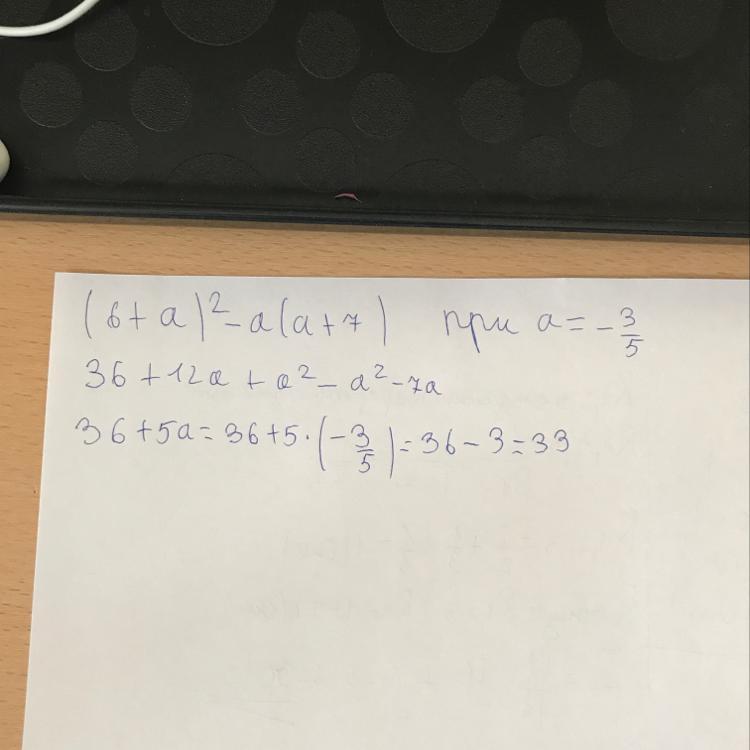 (6+a)²-a(a+7) при a=-3/5
36+12a+a²-a²-7a
36+5a=36+5·(-3/5)=36-3=33